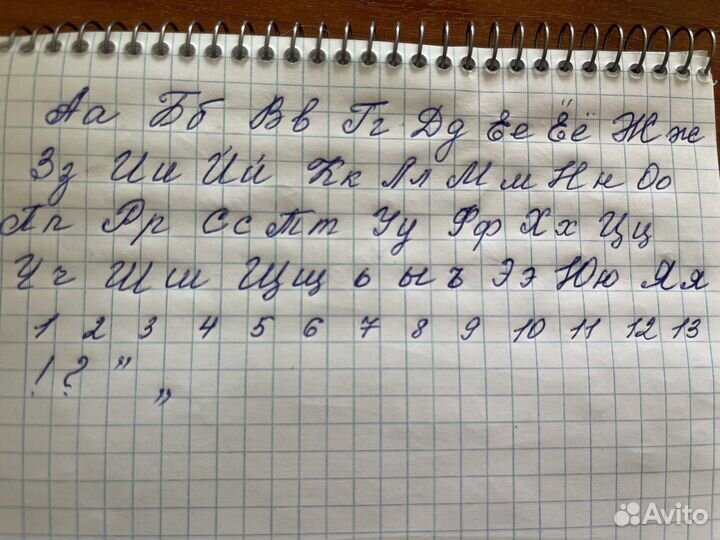 Аа Бб Вв Гг Дд Ее Ёё Жж
Зз Ии Йй Кк Лл Мм Нн Оо
Пп Рр Сс Тт Уу Фф Хх Цц
Чч Шш Щщ ь ы ъ Ээ Юю Яя
1 2 3 4 5 6 7 8 9 10 11 12 13
! ? " „
Avito